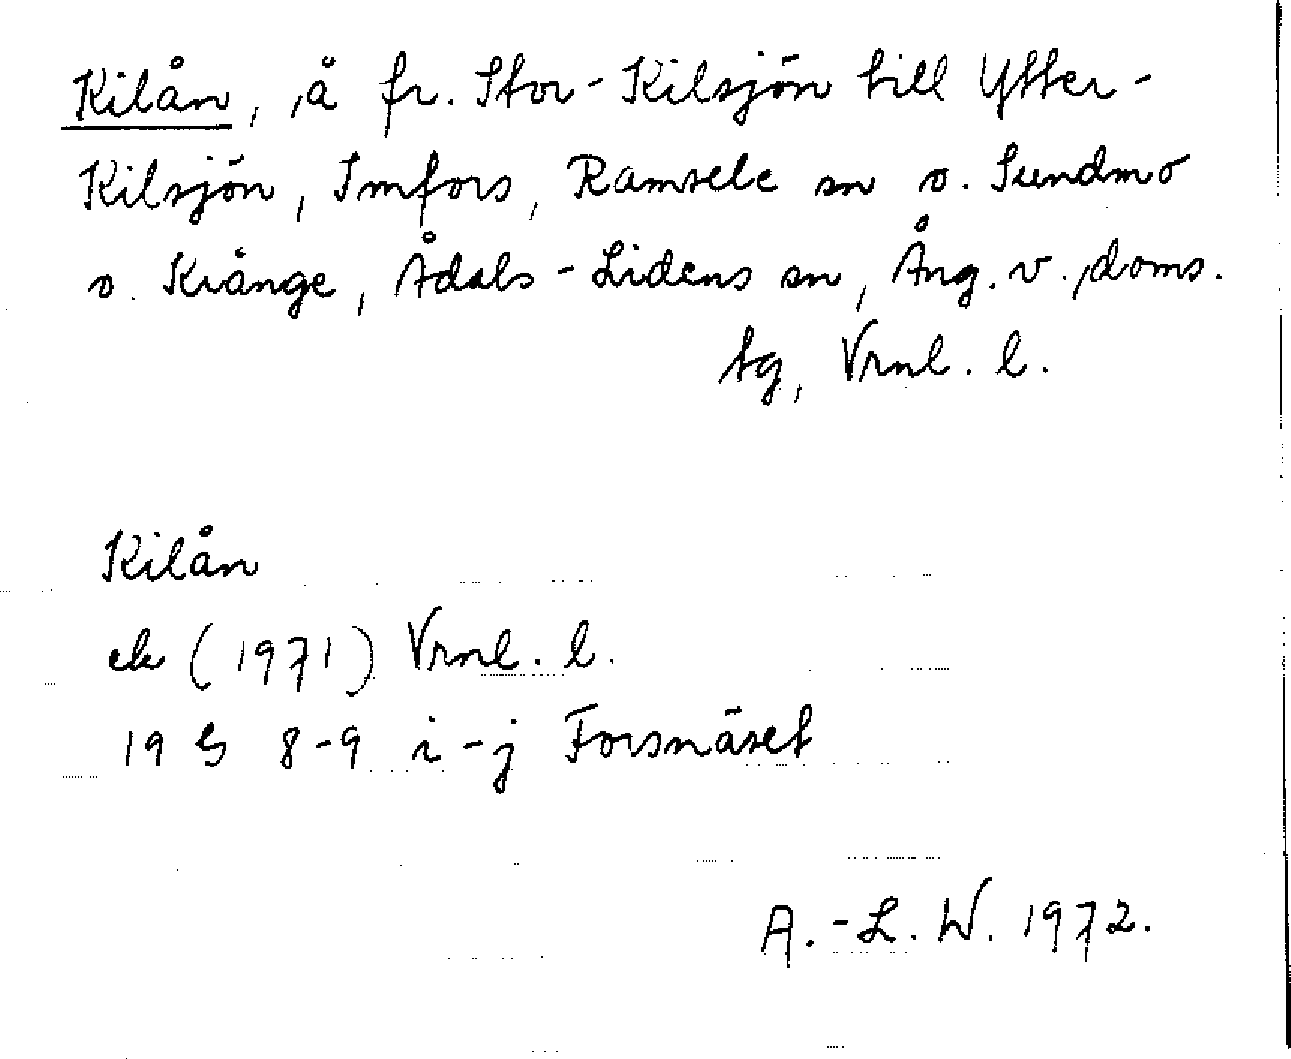 Kilån, å fr. Stor-Kilsjön till Ytter-
Kilsjön, Imfors, Ramsele sn o. Sundmo
o. Krånge, Ådals-Lidens sn, Ång. v. doms.
tg, Vrnl. l.
Kilån
ek (1971) Vrnl. l.
19 G 8-9 i-j Forsnäset
A.-L. W. 1972.